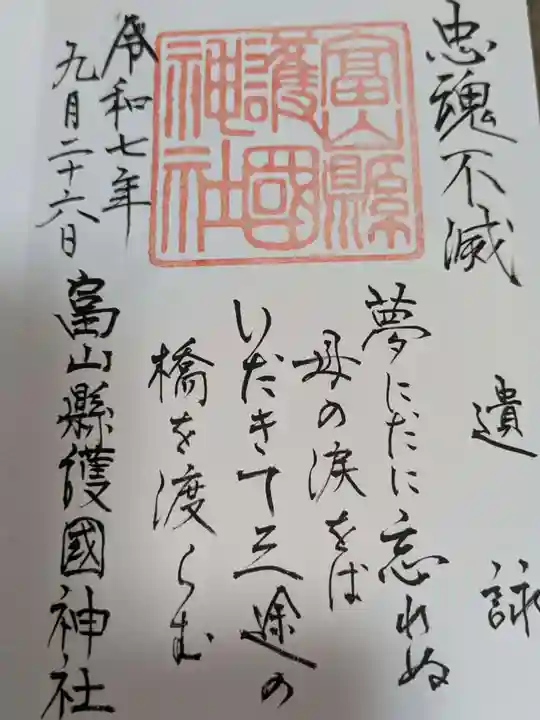 忠魂不滅
遺詠
夢にだに忘れぬ
母の涙をば
いだきて三途の
橋を渡らむ
富山縣
護國
神社
令和七年
九月二十六日
富山縣護國神社